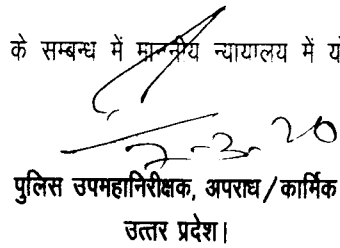 के सम्बन्ध में माननीय न्यायालय में
7-3-20
पुलिस उपमहानिरीक्षक, अपराध/कार्मिक
उत्तर प्रदेश।